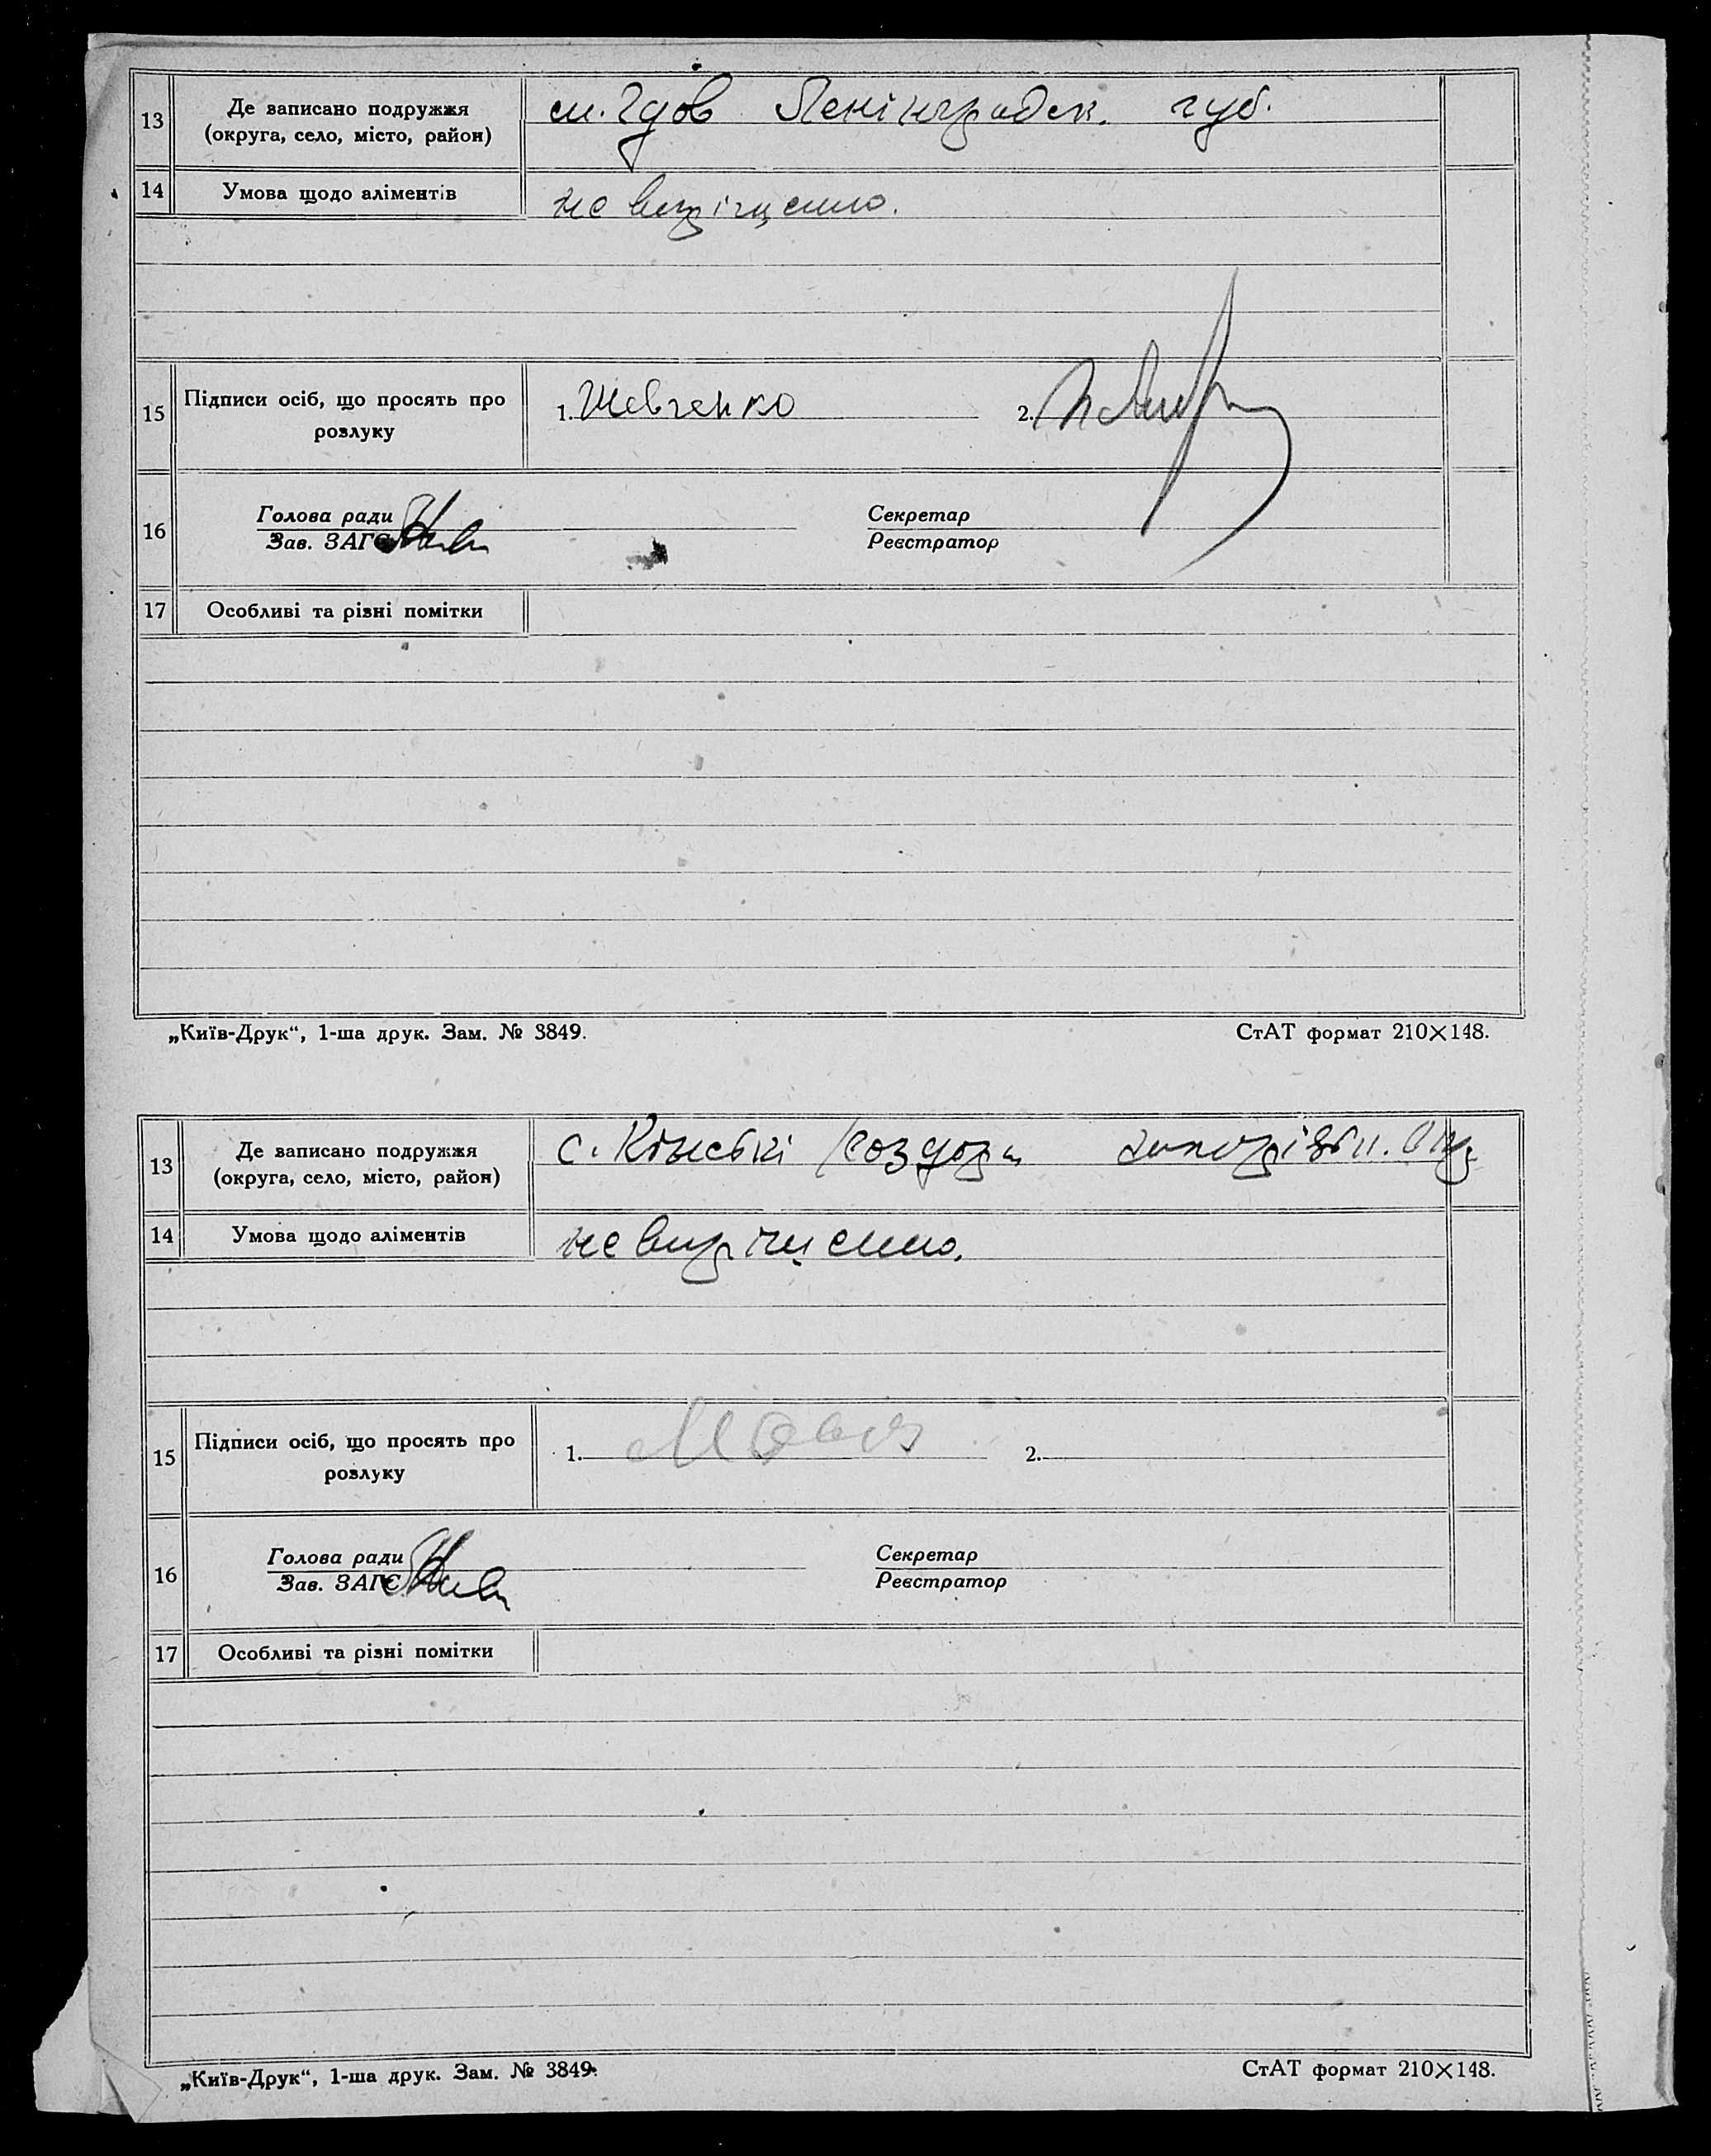 13
Де записано подружжя
(округа, село, місто, район)
м. Гдов Ленінградск. губ.
14
Умова щодо аліментів
не вирішено.
15
Підписи осіб, що просять про
розлуку
1. Шевченко
2.
16
Голова ради
Зав. ЗАГС
Секретар
Реєстратор
17
Особливі та різні помітки
„Київ-Друк“, 1-ша друк. Зам. № 3849.
СтАТ формат 210×148.
13
Де записано подружжя
(округа, село, місто, район)
с. Кінські Роздори
14
Умова щодо аліментів
не вирішено.
15
Підписи осіб, що просять про
розлуку
1.
2.
16
Голова ради
Зав. ЗАГС
Секретар
Реєстратор
17
Особливі та різні помітки
„Київ-Друк“, 1-ша друк. Зам. № 3849.
СтАТ формат 210×148.